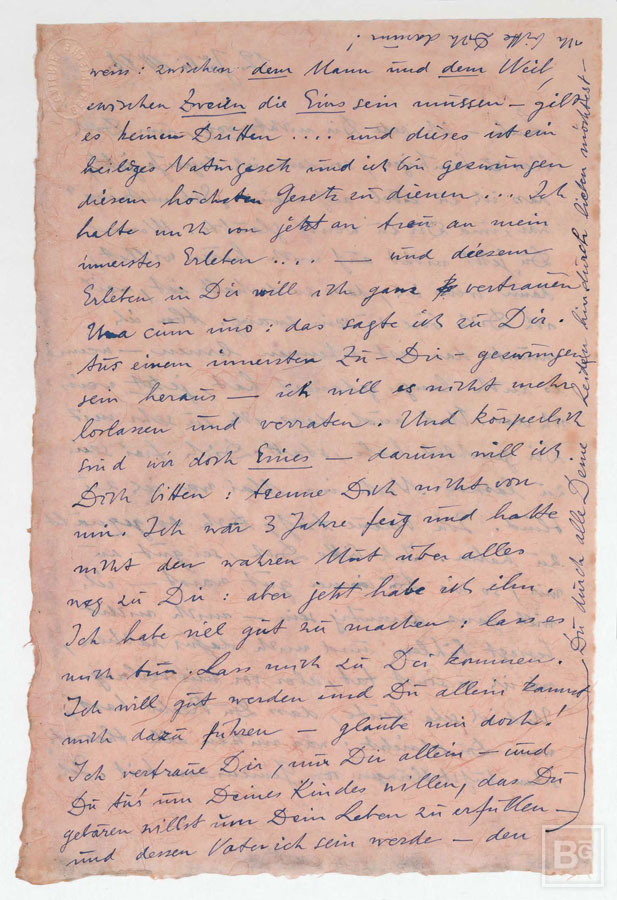 weiss: zwischen dem Mann und dem Weib,
zwischen Zweien die Eins sein müssen – gilt
es keinen Dritten .... und dieses ist ein
heiliges Naturgesetz und ich bin gezwungen
diesem höchsten Gesetz zu dienen ... Ich
halte mich von jetzt an treu an mein
innerstes Erleben .... — und diesem
Erleben in Dir will ich ganz vertrauen
Una cum uno: das sagte ich zu Dir.
Aus einem innersten Zu-Dir-gezwungen
sein heraus — ich will es nicht mehr
loslassen und verraten. Und körperlich
sind wir doch Eines — darum will ich
Dich bitten: trenne Dich nicht von
mir. Ich war 3 Jahre feig und hatte
nicht den wahren Mut über alles
weg zu Dir: aber jetzt habe ich ihn.
Ich habe viel gut zu machen: lass es
mich tun: Lass mich zu Dir kommen.
Ich will gut werden und Du allein kannst
mich dazu führen — glaube mir doch!
Ich vertraue Dir, nur Dir allein – und
Du tus' um Deines Kindes willen, das Du
gebären willst um Dein Leben zu erfüllen –
und dessen Vater ich sein werde – den
Du durch alle Deine Leiden hindurch lieben möchtest –
ich bitte Dich darum!
BG